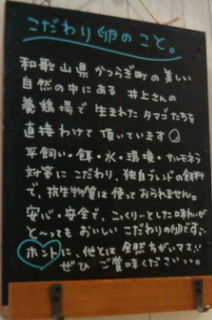 こだわり卵のこと。
和歌山県かつらぎ町の美しい
自然の中にある 井上さんの
養鶏場で 生まれたタマゴたちを
直接わけて頂いています
平飼い・餌・水・環境・サルモネラ
対策に こだわり、独自ブレンドの飼料
で、抗生物質は使っておられません。
安心・安全で、こっくりーとした味わいが
とーってもおいしい こだわりの卵です
ホントに、他とは 全然ちがいマス
ぜひ ご賞味ください